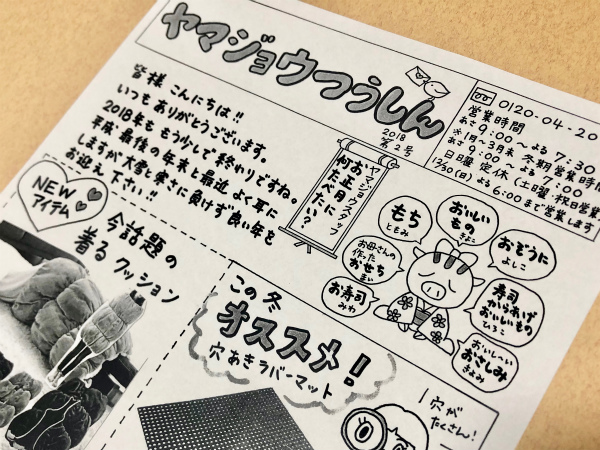 ヤマジョウつうしん
2018
第2号
0120-04-20
営業時間
あさ 9:00 〜 よる 7:30
※1月〜3月末 冬期営業時間
あさ 9:00 〜 よる 7:00
日曜 定休 (土曜・祝日営業
12/30(日) よる 6:00まで営業します
皆様 こんにちは!!
いつも ありがとうございます。
2018年も もう少しで 終わりですね。
平成・最後の年末と最近 よく耳に
しますが 大雪と寒さに負けず良い年を
お迎え 下さい!!
ヤマジョウスタッフ
お正月に
何たべたい?
もち
ともみ
おいしい
もの
おぞうに
よしこ
お母さんの
作った
おせち
まい
お寿司
みわ
寿司
からあげ
おいしいもの
ひろこ
おいし〜い
おさしみ
きよみ
NEW
アイテム
今話題の
着る クッション
この冬
オススメ!
穴あきラバーマット
穴が
たくさん!